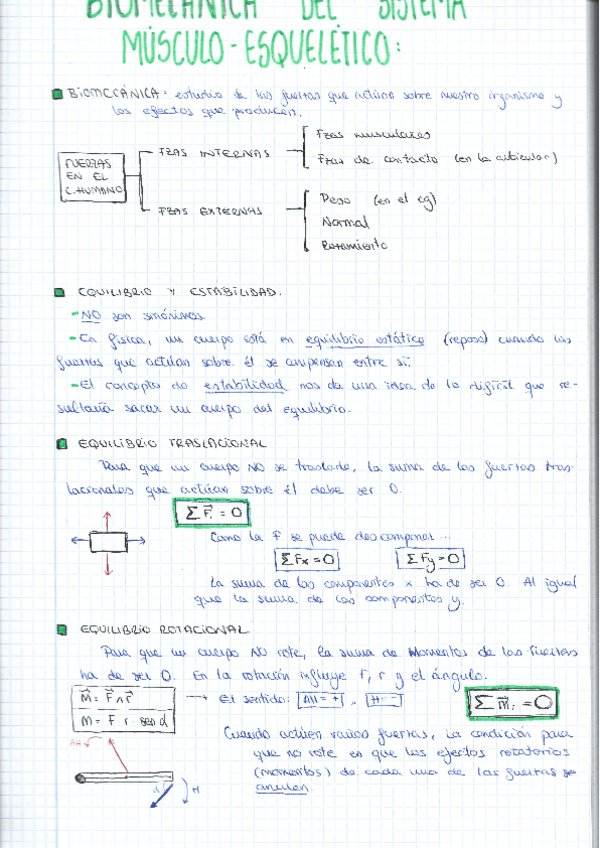 BIOMECÁNICA DEL SISTEMA
MÚSCULO-ESQUELÉTICO:
BIOMECÁNICA: estudio de las fuerzas que actúan sobre nuestro organismo y
los efectos que producen.
FUERZAS
EN EL
C.HUMANO
FZAS INTERNAS
Fzas musculares
Fzas de contacto (en la articulan)
FZAS EXTERNAS
Peso (en el cg)
Normal
Rozamiento
EQUILIBRIO Y ESTABILIDAD.
- NO son sinónimos
- En física, un cuerpo está en equilibrio estático (reposo) cuando las
fuerzas que actúan sobre él se compensan entre sí.
- El concepto de estabilidad nos da una idea de lo difícil que re-
sultaría sacar un cuerpo del equilibrio.
EQUILIBRIO TRASLACIONAL
Para que un cuerpo NO se traslade, la suma de las fuerzas tras-
lacionales que actúan sobre él debe ser 0.
Σ F⃗ᵢ = 0
Como la F se puede descomponer...
ΣFx = 0
ΣFy = 0
La suma de las componentes x ha de ser 0. Al igual
que la suma de las componentes y.
EQUILIBRIO ROTACIONAL
Para que un cuerpo NO rote, la suma de Momentos de las fuerzas
ha de ser 0. En la rotación influye F, r y el ángulo.
M⃗ = F⃗ ∧ r⃗
M = F r sen α
→ El sentido: AH = + , H = -
Σ M⃗ᵢ = 0
Cuando actúen varias fuerzas, la condición para
que no rote es que los efectos rotatorios
(momentos) de cada una de las fuerzas se
anulen.
AH
α
H